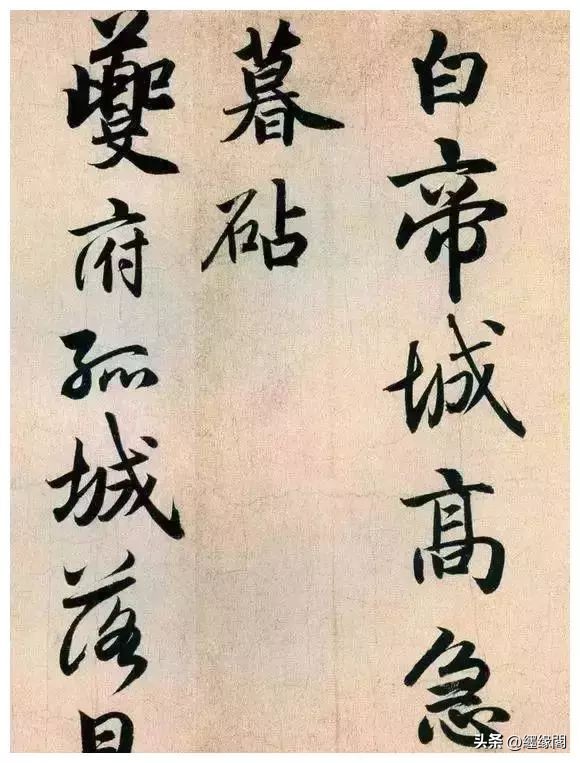 白帝城高急
暮砧
夔府孤城落日
头条 @缘閣